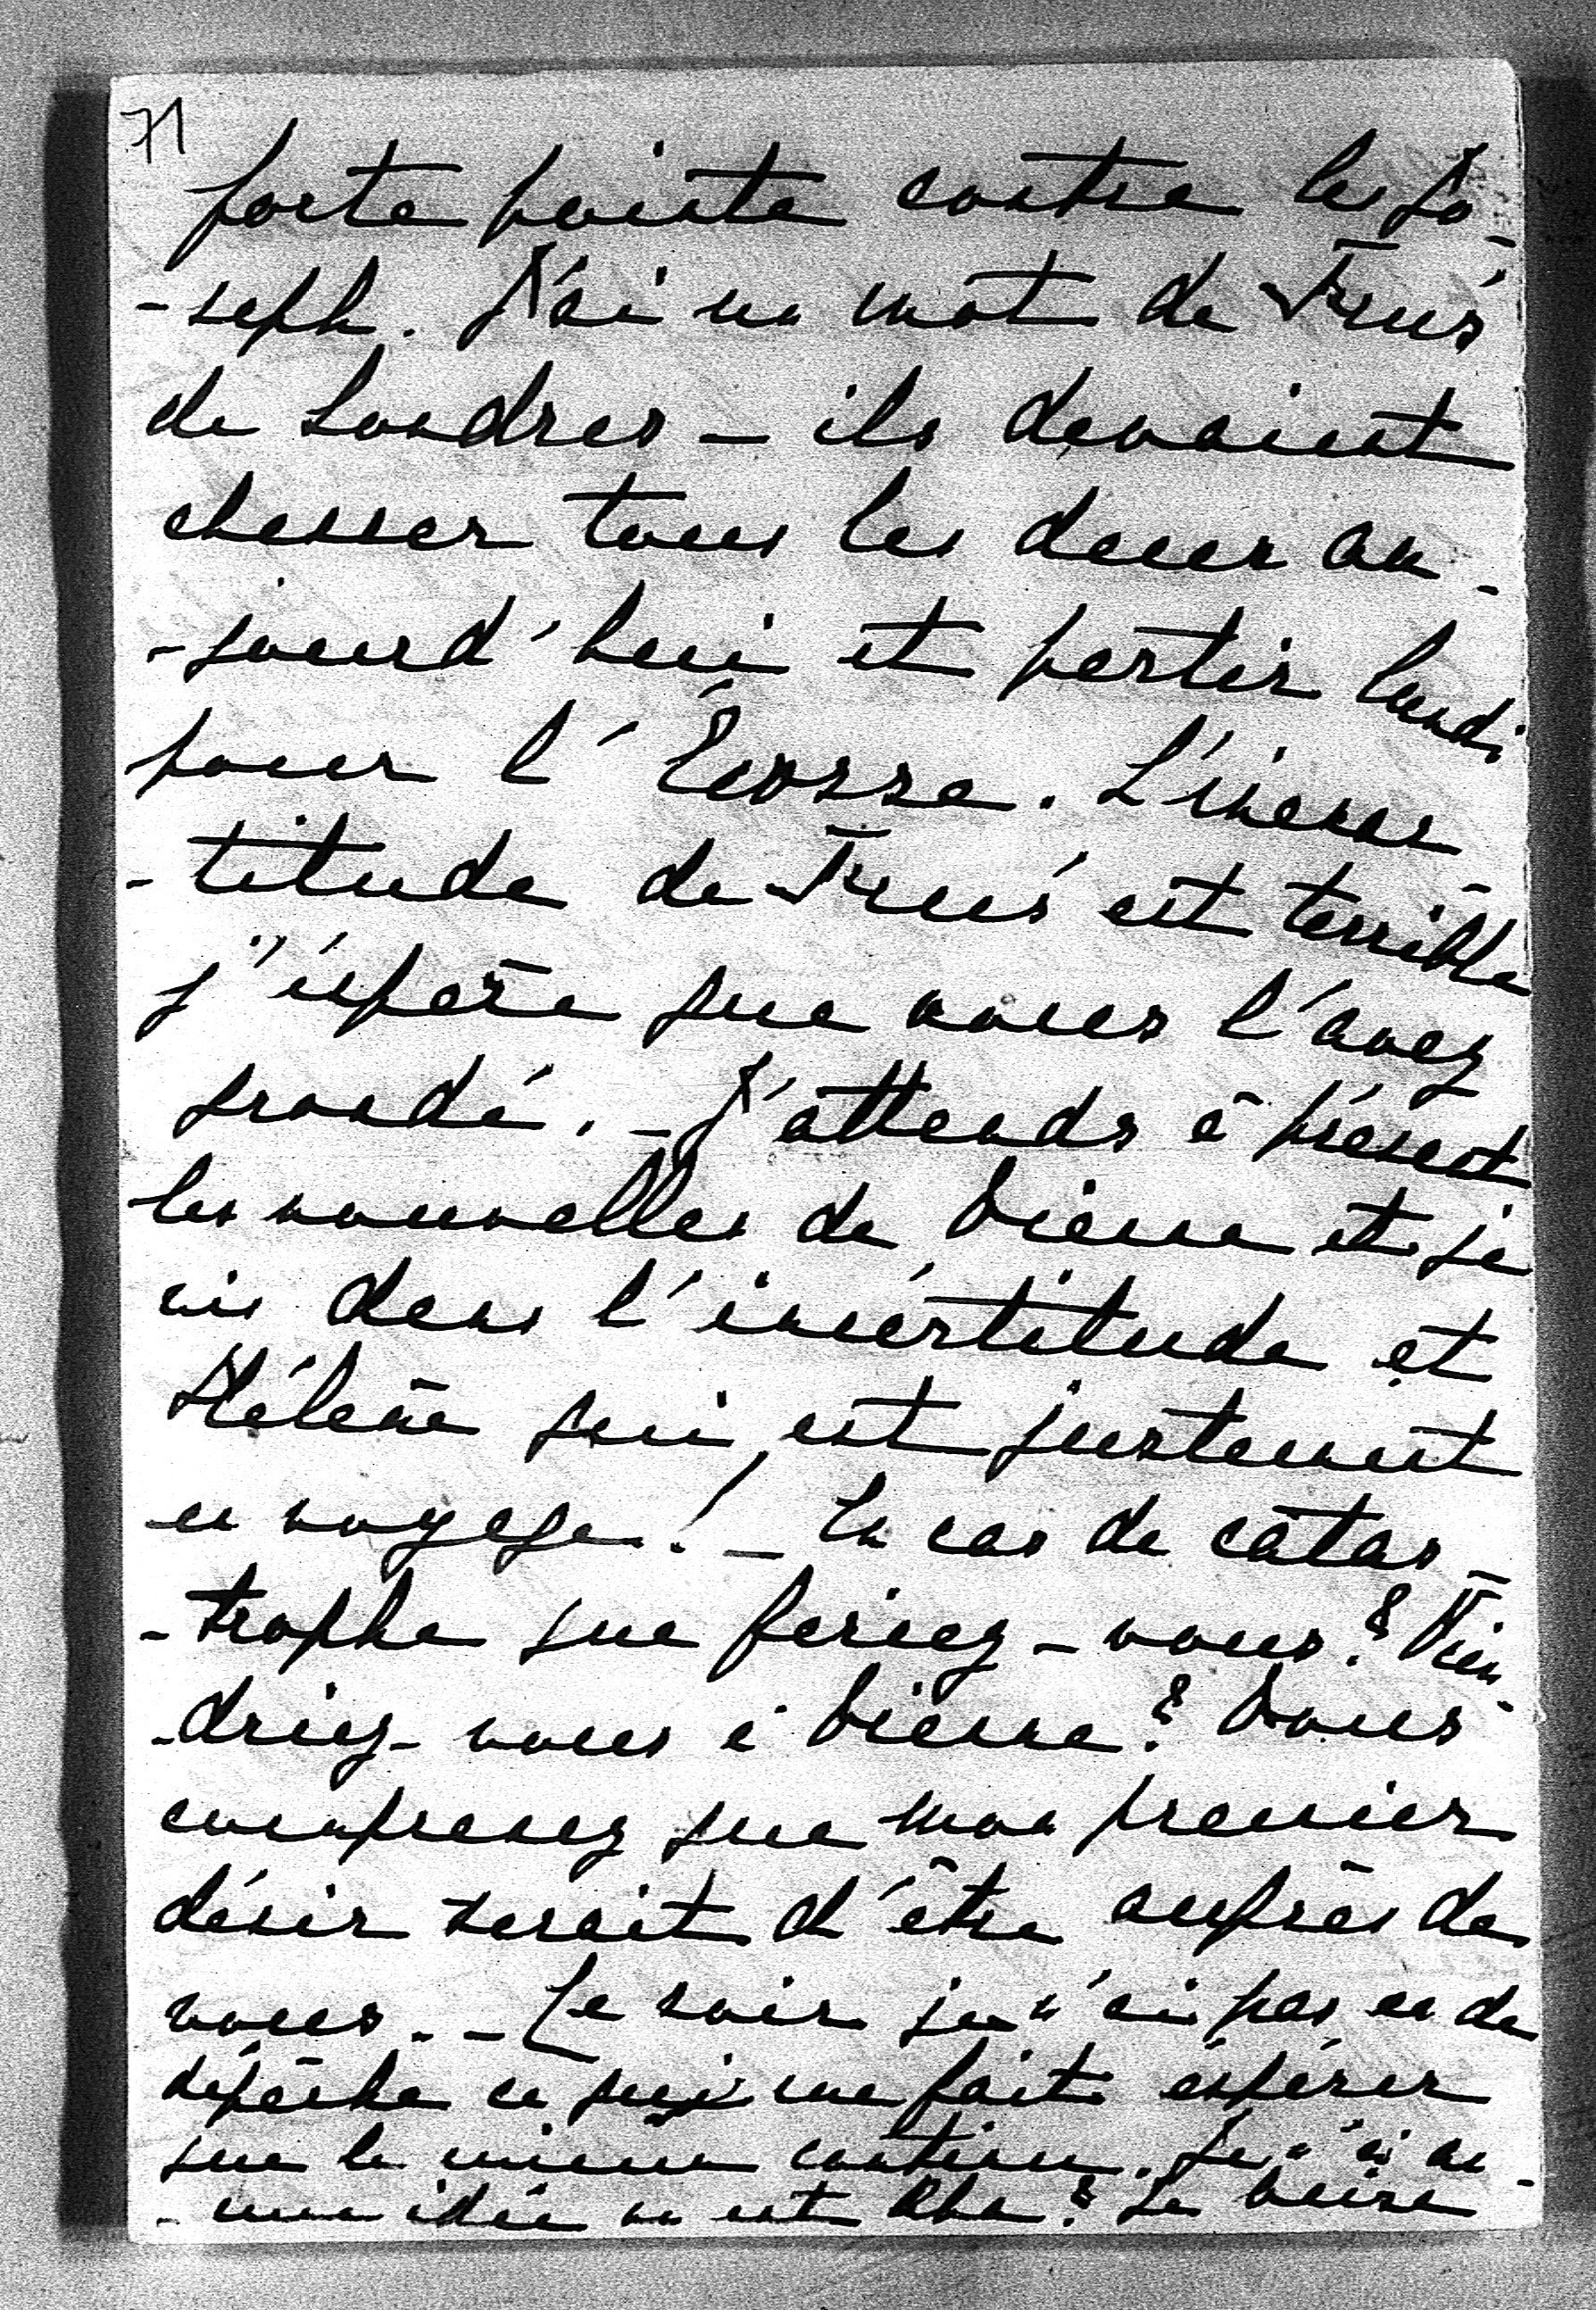 71
forte pointe contre les Jo-
-seph. J'ai un mot de
de Londres - ils devaient
chasser tous les deux au-
-jourd'hui et partir lundi
pour l'Écosse. L'inexac-
-titude de est terrible
j'espère que vous l'avez
grondé. - J'attends à présent
les nouvelles de Vienne et je
vis dans l'incertitude et
Hélène qui est justement
en voyage! - En cas de catas-
-trophe que feriez-vous? Vien-
-driez-vous à Vienne? Vous
comprenez que mon premier
désir serait d'être auprès de
vous. - Ce soir je n'ai pas eu de
dépêche ce qui me fait espérer
que le mieux continue. Je n'ai au-
-cune idée où est ? Je baise